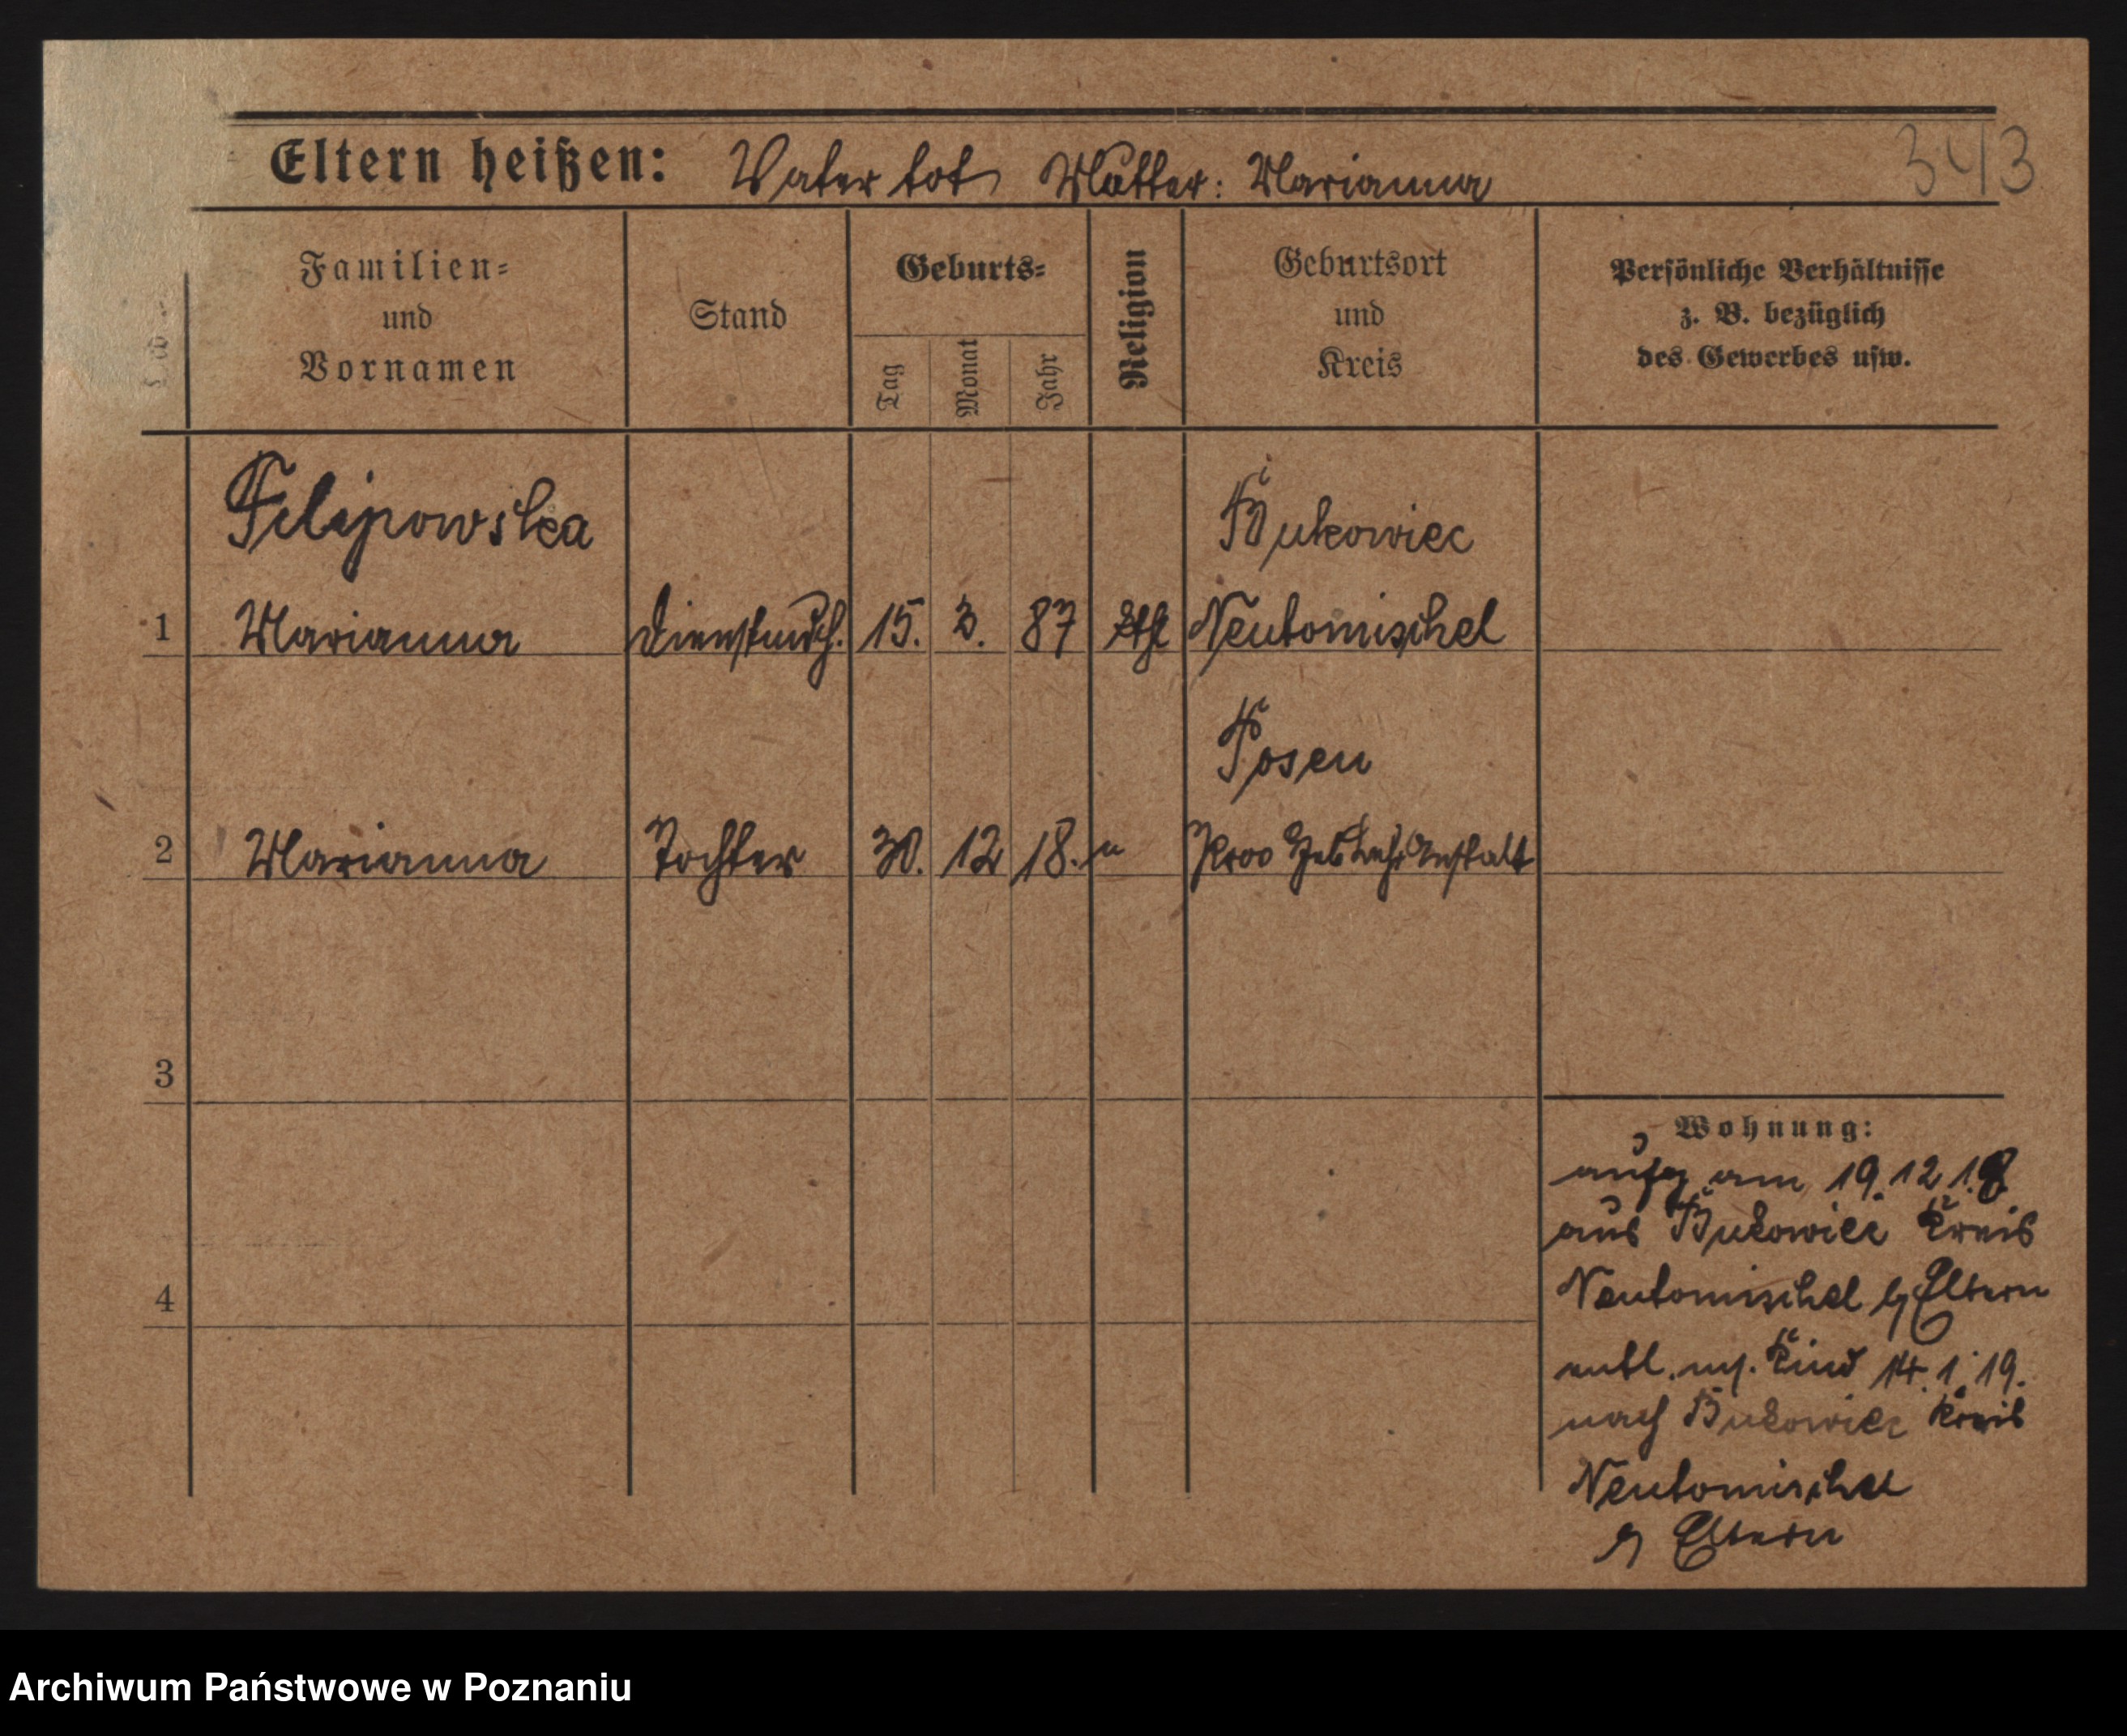 343
Eltern heißen: Vater tot Mutter: Marianna
Familien=
und
Vornamen
Stand
Geburts=
Tag
Monat
Jahr
Religion
Geburtsort
und
Kreis
Persönliche Verhältnisse
z. B. bezüglich
des Gewerbes usw.
Filipowska
Bukowiec
1 Marianna Dienstmdch. 15. 3. 87 kth Neutomischel
Posen
2 Marianna Tochter 30. 12 18. " Prov Heb Lehr Anstalt
3
4
Wohnung:
aufg am 19.12.18
aus Bukowiec Kreis
Neutomischel b/ Eltern
entl. m/. Kind 14.1.19.
nach Bukowiec Kreis
Neutomischel
b/ Eltern
Archiwum Państwowe w Poznaniu